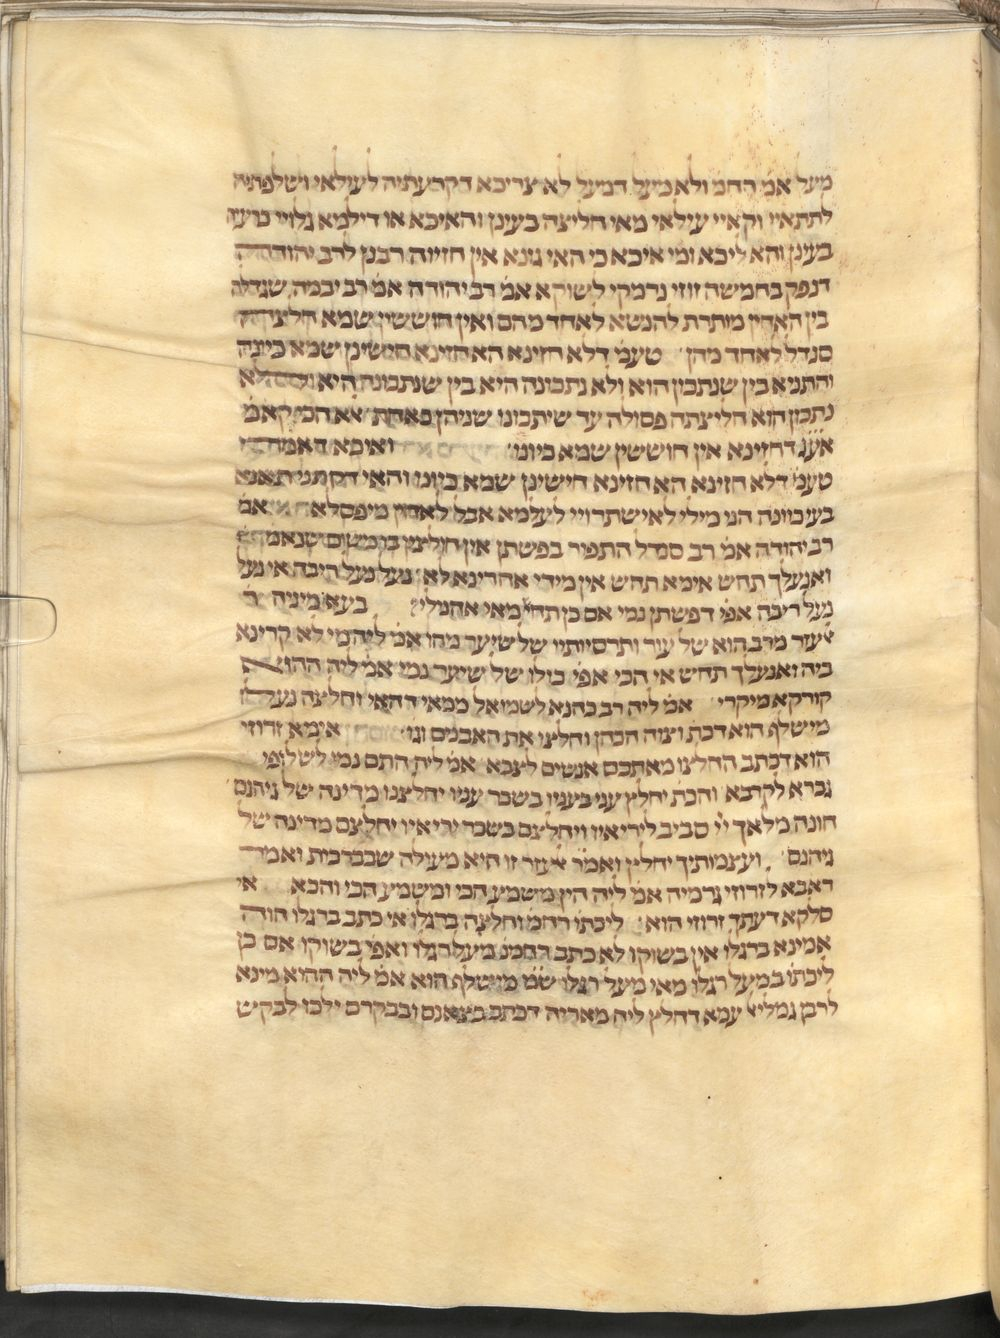 מעל אמ׳ רחמ׳ ולא מעל דמעל לא צריכא דקרעתיה לעילאי ושלפתיה
לתתאיו וקאיי עילאי מאי חליצה בעינן והאיכא או דילמא גלויי כרעיה
בעינן והא ליכא ומי איכא כי האי גונא אין חזיוה רבנן לרב יהודה
דנפק בחמשה זוזי גרמקי לשוקא אמ׳ רב יהודה אמ׳ רב יבמה שגדלה
בין האחין מותרת להנשא לאחד מהם ואין חוששין שמא חלצה
סנדל לאחד מהן טעמ׳ דלא חזינא הא חזינא חישינן שמא כיונה
והתניא בין שנתכון הוא ולא נתכונה היא בין שנתכונה היא ולא
נתכון הוא חליצתה פסולה עד שיתכונו שניהן כאחת לא הכי קאמ׳
אע״ג דחזינא אין חוששין שמא כיונו ואיכא דאמרי
טעמ׳ דלא חזינא הא חזינא חישינן שמא כיונו והאי דקתני תאנא
בעי כוונה הני מילי לאישתרויי לעלמא אבל לאחין מיפסלא אמ׳
רב יהודה אמ׳ רב סנדל התפור בפשתן אין חולצין בו משום שנאמ׳
ואנעלך תחש אימא תחש אין מידי אחרינא לא נעל נעל ריבה אי נעל
נעל ריבה אפי׳ דפשתן נמי אם כן תחש מאי אהנולי בעא מיניה ר׳
אלעזר מרב הוא של עור ותרסיותיו של שיער מהו אמ׳ ליה מי לא קרינא
ביה ואנעלך תחש אי הכי אפי׳ כולו של שיער נמי אמ׳ ליה ההוא
קורקא מיקרי אמ׳ ליה רב כהנא לשמואל ממאי דהאי וחלצה נעלו
מישלף הוא דכת׳ וצוה הכהן וחלצו את האבנים וגו׳ אימא זרוזי
הוא דכתב החלצו מאתכם אנשים לצבא אמ׳ ליה התם נמי לשלופי
גברא לקרבא והכת׳ יחלץ עני בעניו בשכר עניו יחלצנו מדינה של גיהנם
חונה מלאך יי׳ סביב ליריאיו ויחלצם בשכר יריאיו יחלצם מדינה של
גיהנם ועצמותיך יחליץ ואמ׳ ר׳ אלעזר זו היא מעולה שבברכות ואמר
ראבא לזרוזי גרמיה אמ׳ ליה הין משמע הכי ומשמע הכי והכא אי
סלקא דעתך זרוזי הוא ליכתו׳ רחמ׳ וחלצה ברגלו אי כתב ברגלו הוה
אמינא ברגלו אין בשוקו לא כתב רחמנ׳ מעל רגלו ואפי׳ בשוקו אם כן
ליכתו׳ במעל רגלו מאי מעל רגלו ש״מ מישלף הוא אמ׳ ליה ההוא מינא
לרבן גמליאל עמא דחלץ ליה מאריה דכתב בצאנם ובבקרם ילכו לבקש